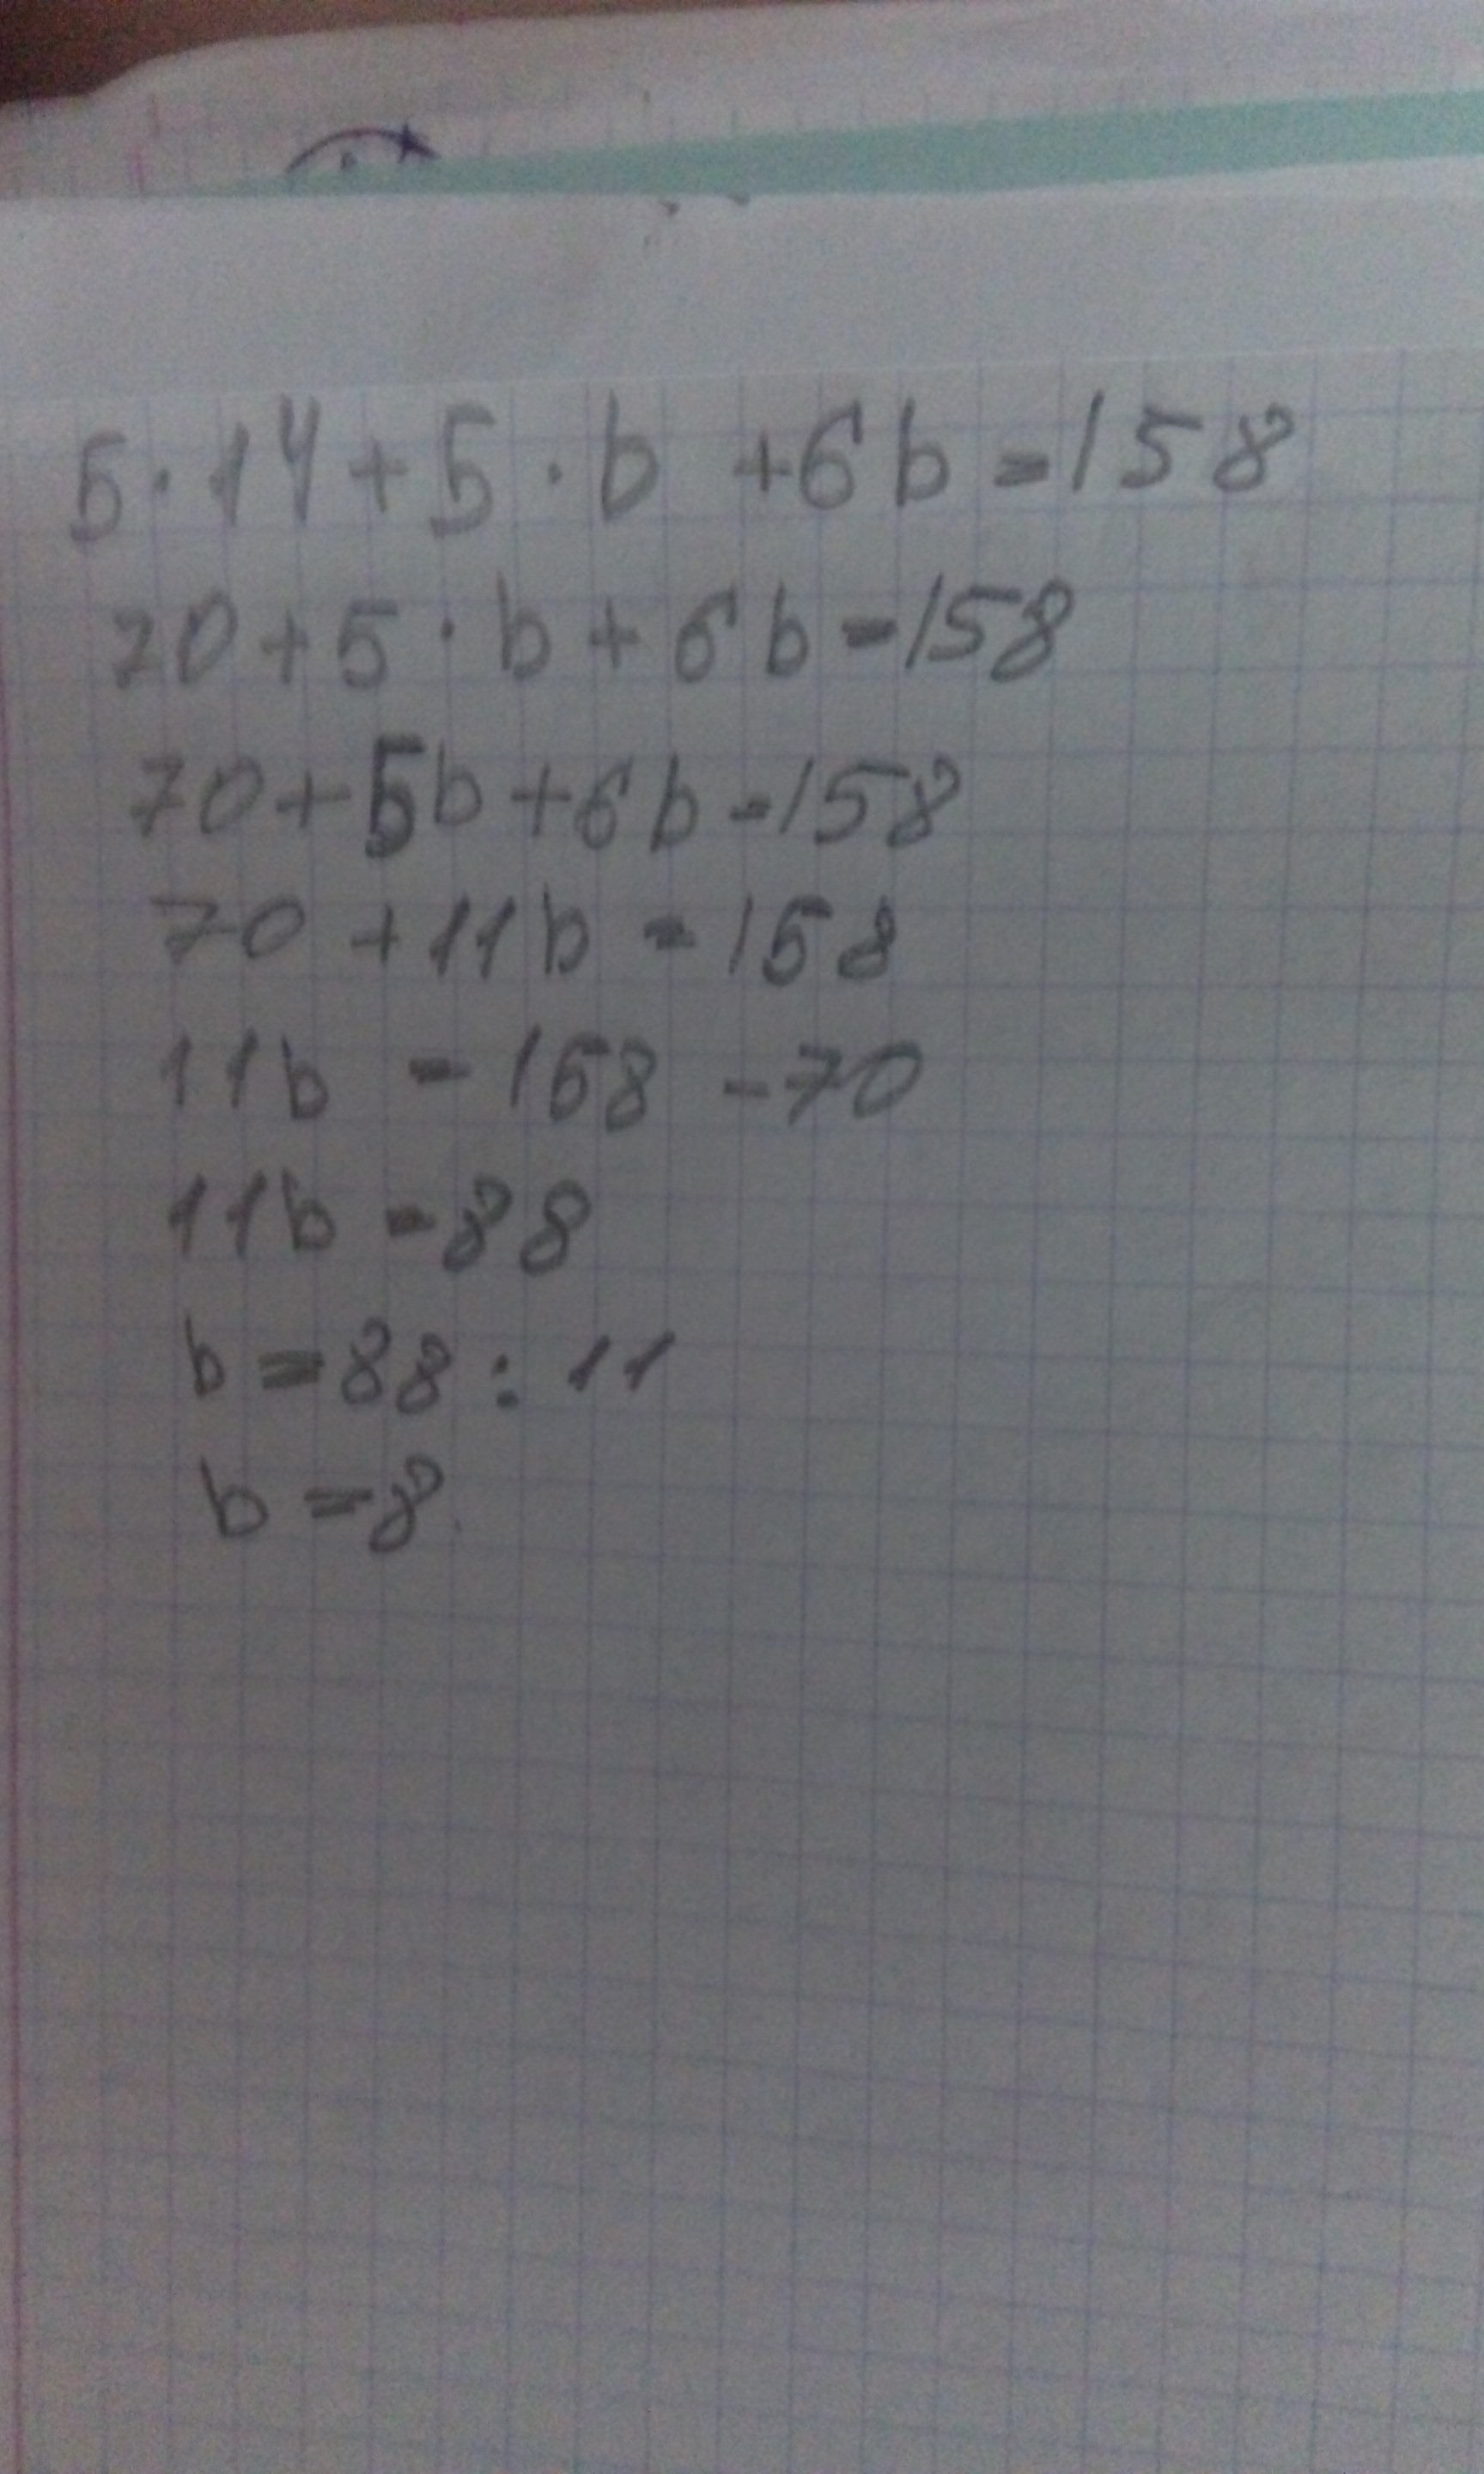 5·14+5·b+6b=158
70+5·b+6b=158
70+5b+6b=158
70+11b=158
11b=158-70
11b=88
b=88:11
b=8